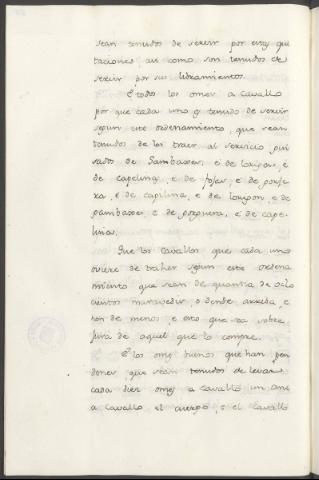 sean tenudos de servir por estas qui
taciones, asi como son tenudos de
servir por sus libramientos.
E todos los omes a cavallo
por que cada uno es tenudo de servir
segun este ordenamiento, que sean
tenudos de los traer al servicio, gui
sados de Gambaxes, e de lorigas, e
de capelinas, e de fojas, e de
e de capelina, e de lorigon, e de
gambaxes, e de, e de cape-
lina.
Que los cavallos que cada uno
oviere de traher segun este ordena
miento que sean de quantia de ocho
cientos maravedis, o dende arriba, e
non de menos, e esto que sea sobre
jura de aquel que lo compre.
E los omes buenos que han pen
dones, que sean tenudos de levar
cada diez omes a cavallo un ome
a cavallo el cuerpo, e el cavallo